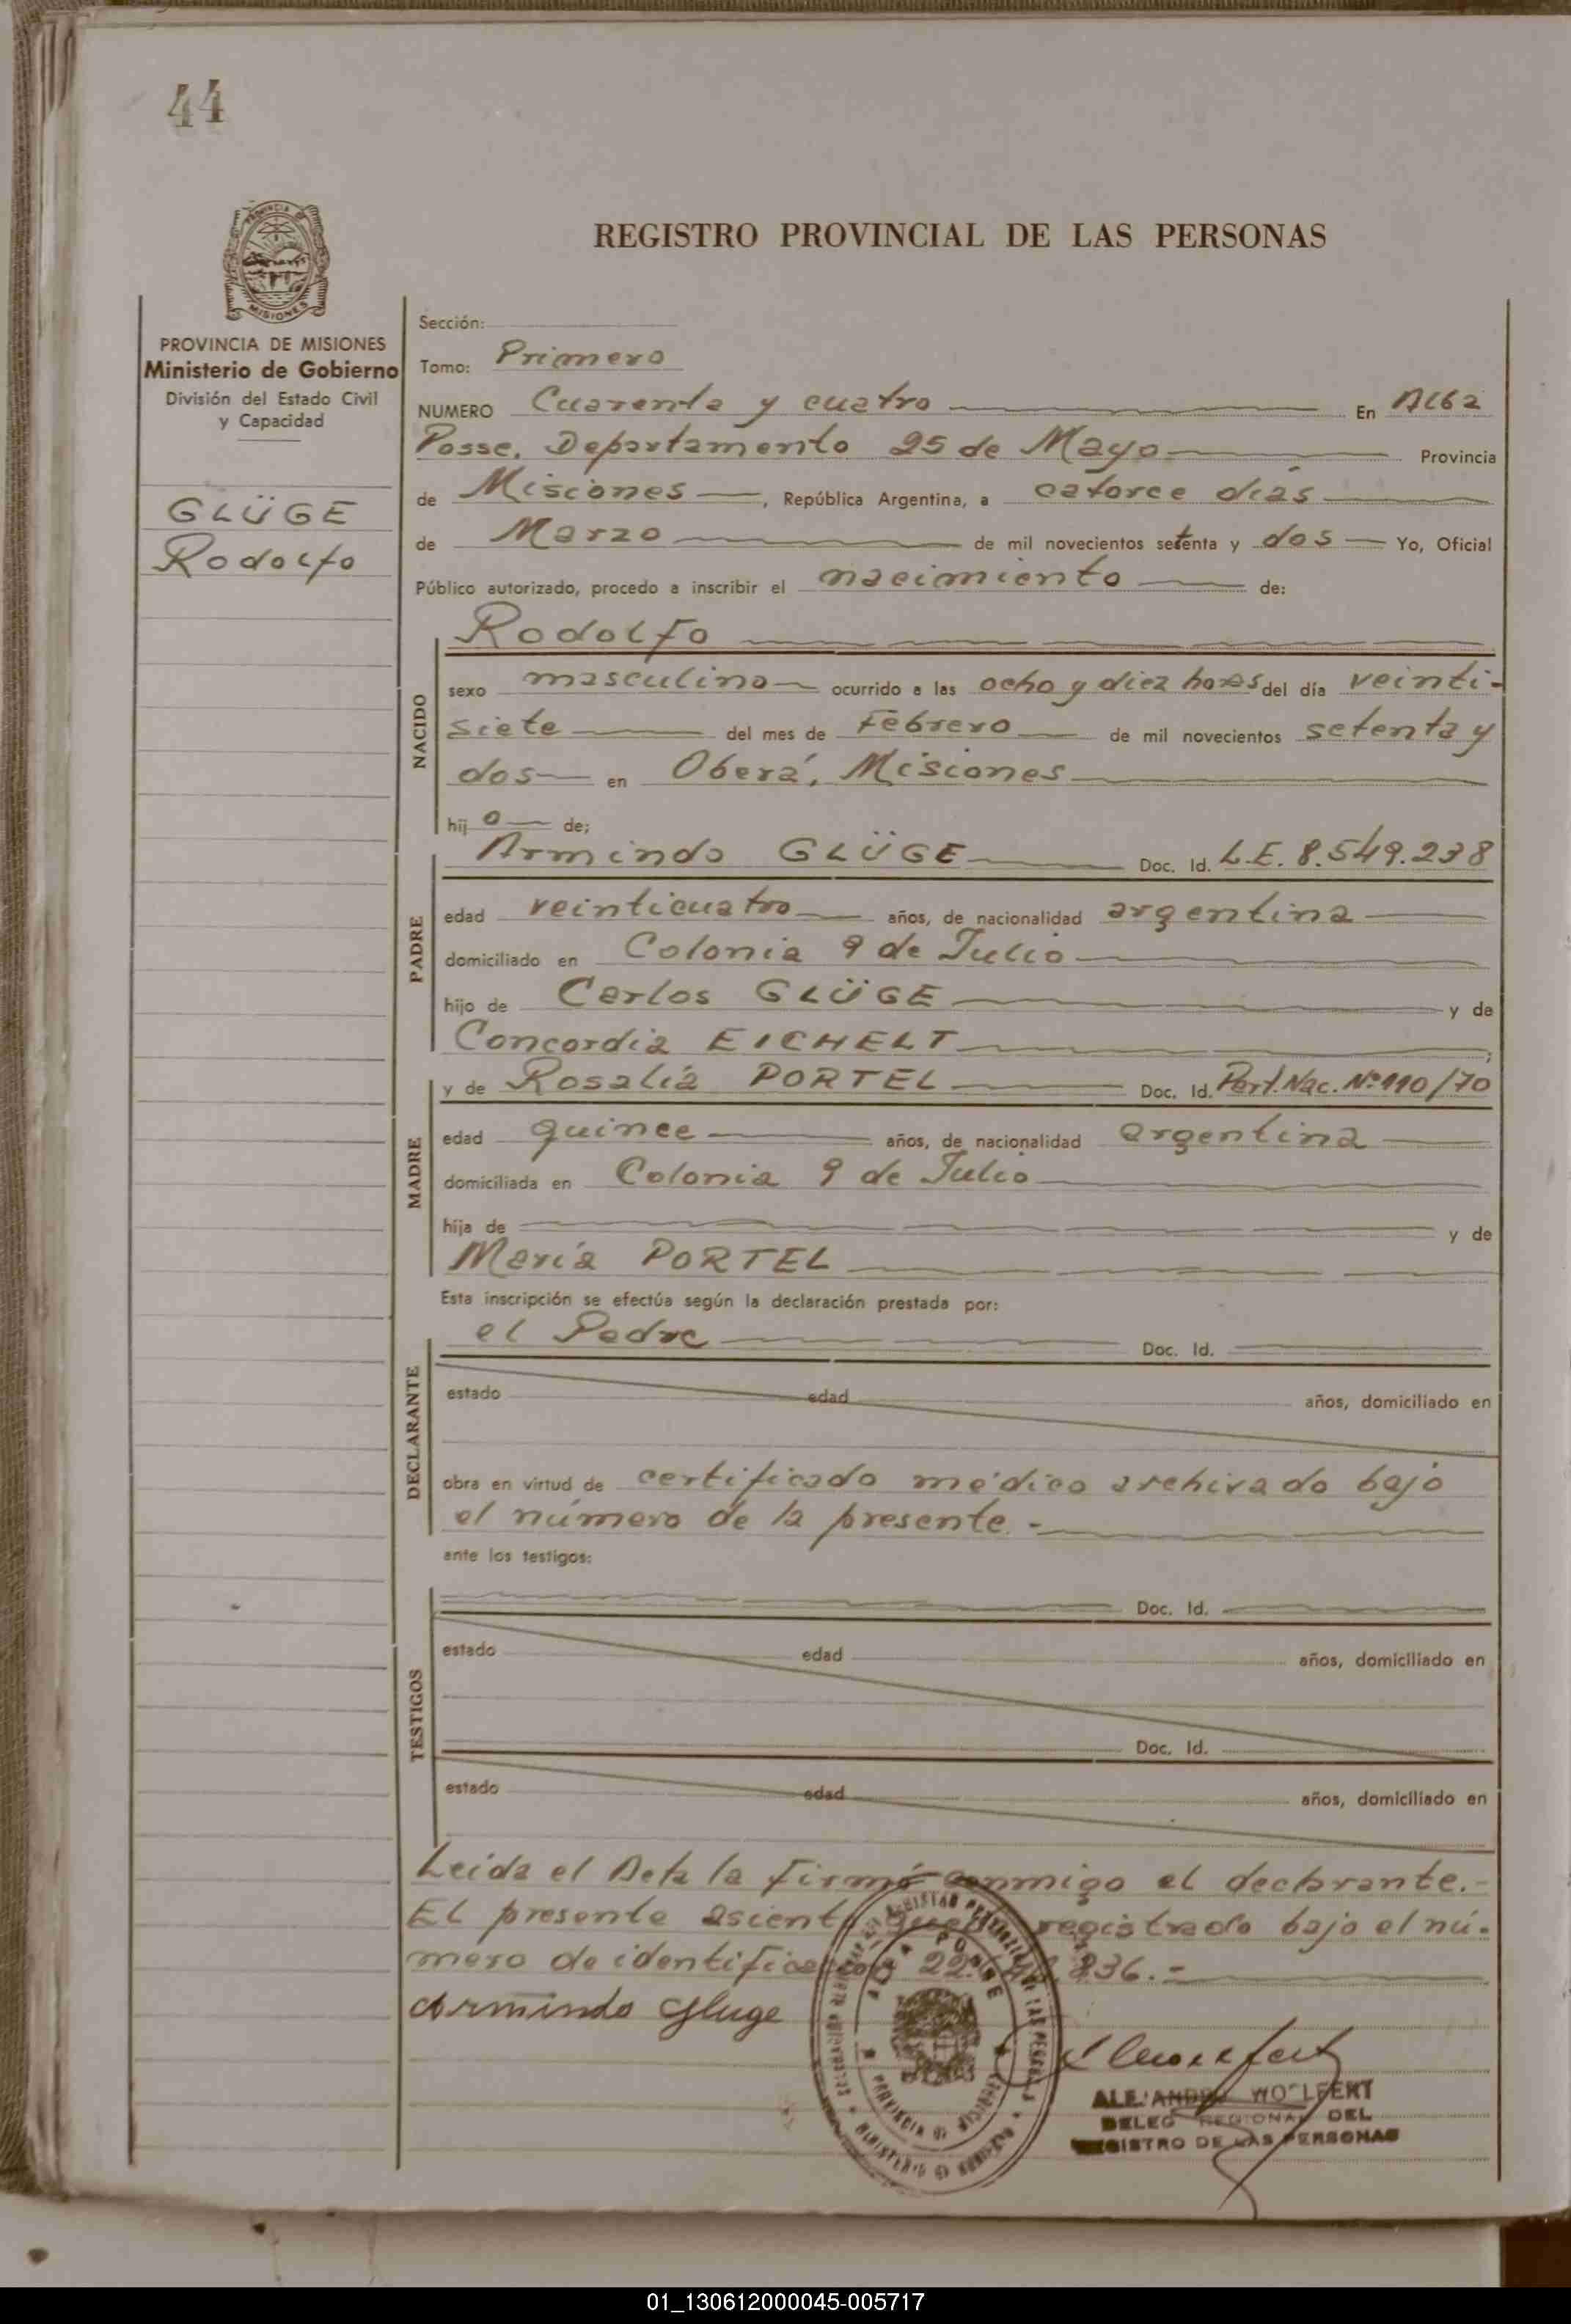 44
PROVINCIA DE MISIONES
REGISTRO PROVINCIAL DE LAS PERSONAS
PROVINCIA DE MISIONES
Ministerio de Gobierno
División del Estado Civil
y Capacidad
GLÜGE
Rodolfo
Sección:
Tomo: Primero
NUMERO Cuarenta y cuatro En Alba
Posse, Departamento 25 de Mayo Provincia
de Misiones, República Argentina, a catorce días
de Marzo de mil novecientos setenta y dos Yo, Oficial
Público autorizado, procedo a inscribir el nacimiento de:
NACIDO
Rodolfo
sexo masculino ocurrido a las ocho y diez horas del día veinti-
siete del mes de Febrero de mil novecientos setenta y
dos en Oberá, Misiones
hij o de;
PADRE
Armindo GLÜGE Doc. Id. L.E. 8.549.238
edad veinticuatro años, de nacionalidad argentina
domiciliado en Colonia 9 de Julio
hijo de Carlos GLÜGE y de
Concordia EICHELT;
MADRE
y de Rosalia PORTEL Doc. Id. Part. Nac. Nº 110/70
edad quince años, de nacionalidad argentina
domiciliada en Colonia 9 de Julio
hija de y de
María PORTEL
Esta inscripción se efectúa según la declaración prestada por:
DECLARANTE
el Padre Doc. Id.
estado edad años, domiciliado en
obra en virtud de certificado médico archivado bajo
el número de la presente.-
ante los testigos:
TESTIGOS
Doc. Id.
estado edad años, domiciliado en
Doc. Id.
estado edad años, domiciliado en
Leída el Acta la firmó conmigo el declarante.-
El presente asiento queda registrado bajo el nú-
mero de identificación 22. 836.-
Armindo Gluge
ALBA POSSE
PROVINCIA DE MISIONES
ALEJANDRO WOLFERT
DELEG REGIONAL DEL
REGISTRO DE LAS PERSONAS
01_130612000045-005717